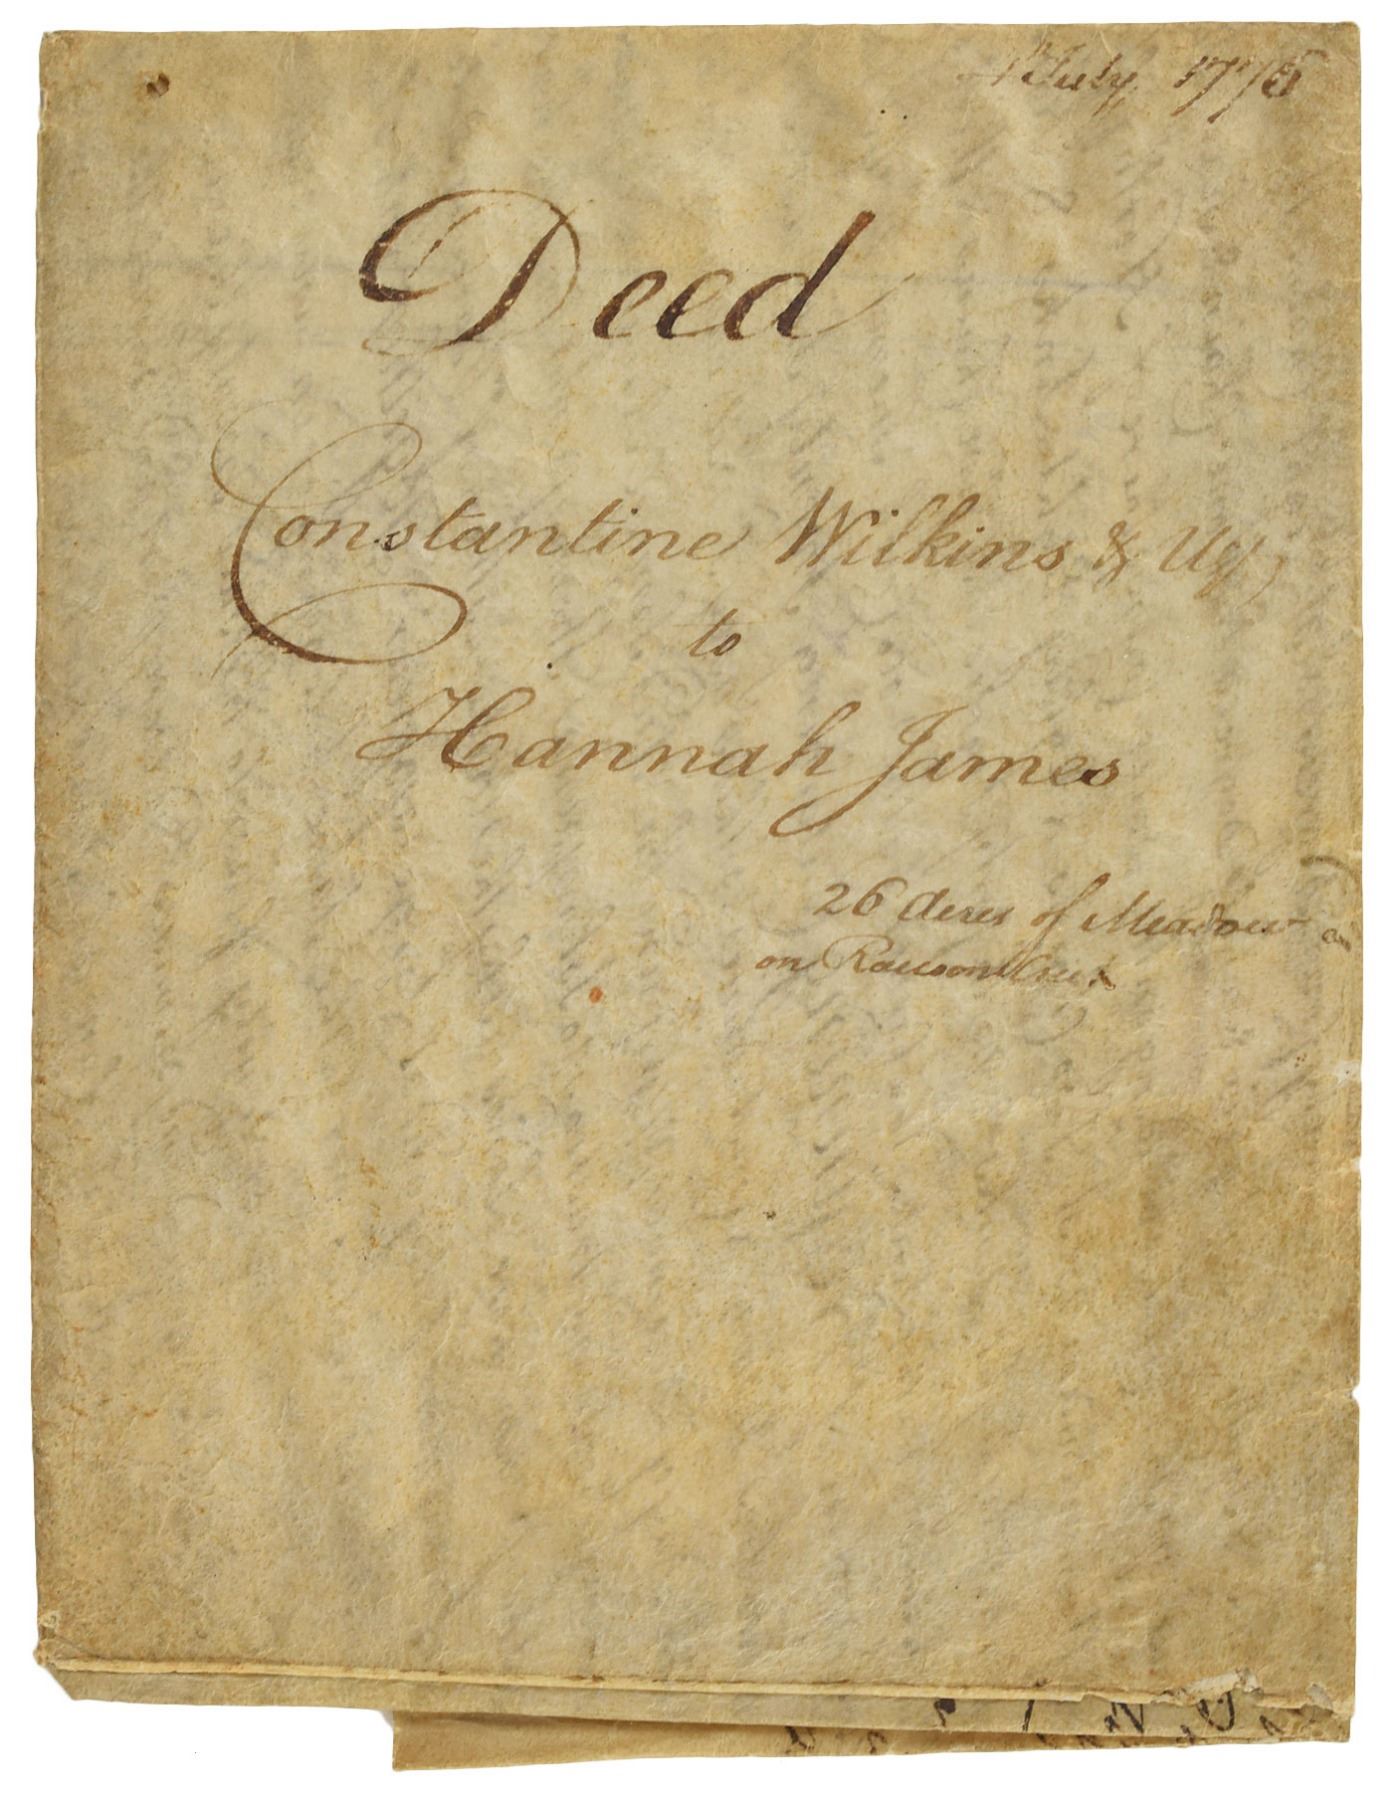 July, 1775
Deed
Constantine Wilkins & Ux,
to
Hannah James
26 Acres of Meadow
on Raccoon Creek